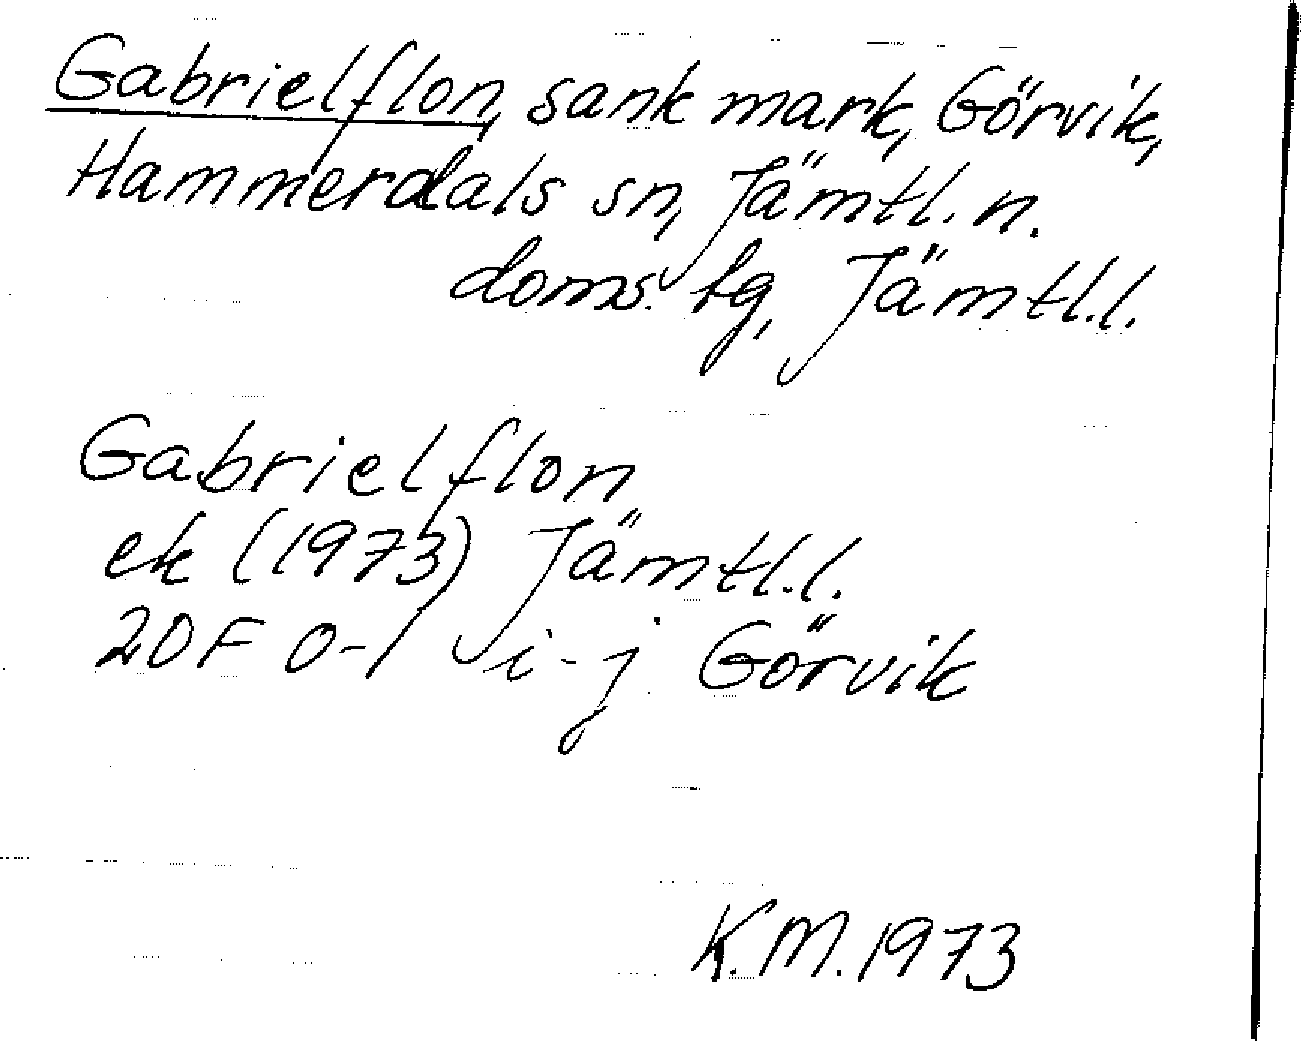 Gabrielflon, sank mark, Görvik,
Hammerdals sn, Jämtl. n.
doms. tg, Jämtl.l.
Gabrielflon
ek (1973) Jämtl.l.
20F 0-1 i-j Görvik
K.M. 1973